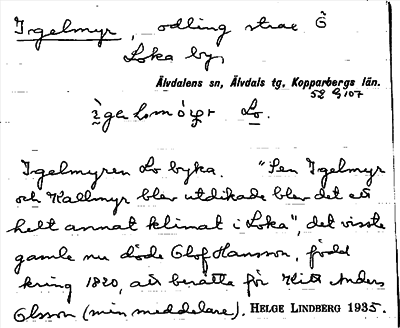 Igelmyr, odling strax Ö
Loka by,
Älvdalens sn, Älvdals tg, Kopparbergs län.
52 G 107
Lo.
Igelmyren Lo byka. "Sen Igelmyr
och Kallmyr blev utdikade blev det ett
helt annat klimat i Loka", det visste
gamle nu döde Olof Hansson, född
kring 1820, att berätta för Hitt Anders
Olsson (min meddelare). HELGE LINDBERG 1935.